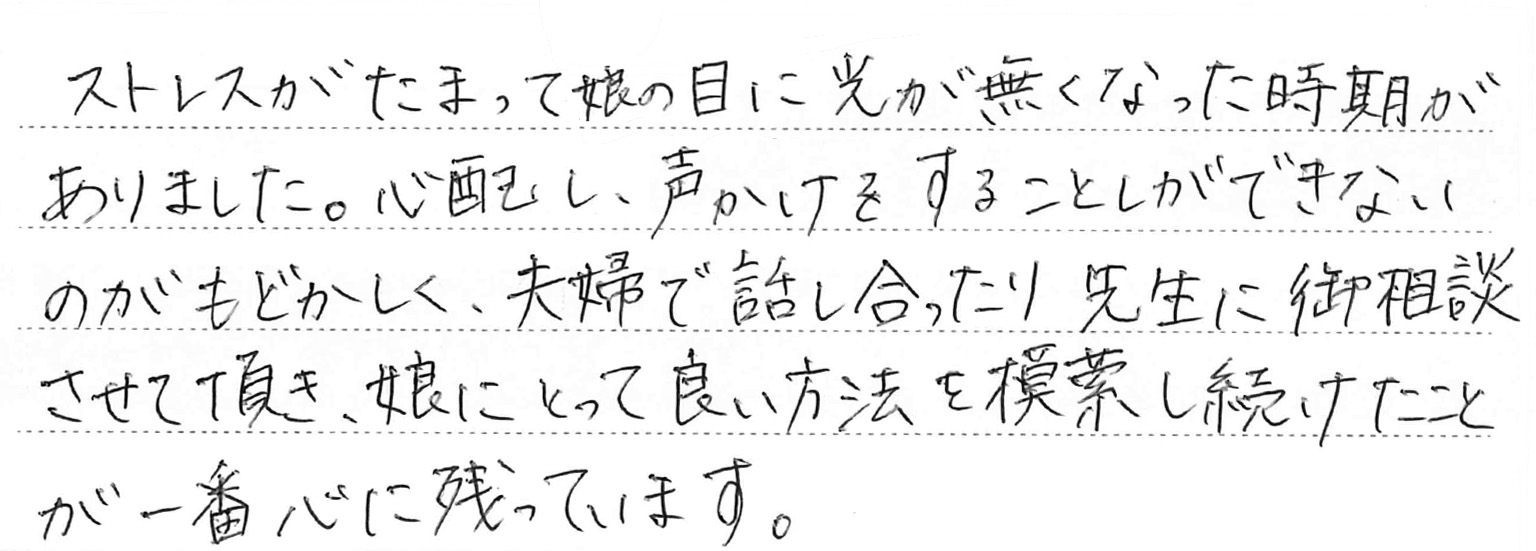 ストレスがたまって娘の目に光が無くなった時期が
ありました。心配し、声かけをすることしかできない
のがもどかしく、夫婦で話し合ったり先生に御相談
させて頂き、娘にとって良い方法を模索し続けたこと
が一番心に残っています。